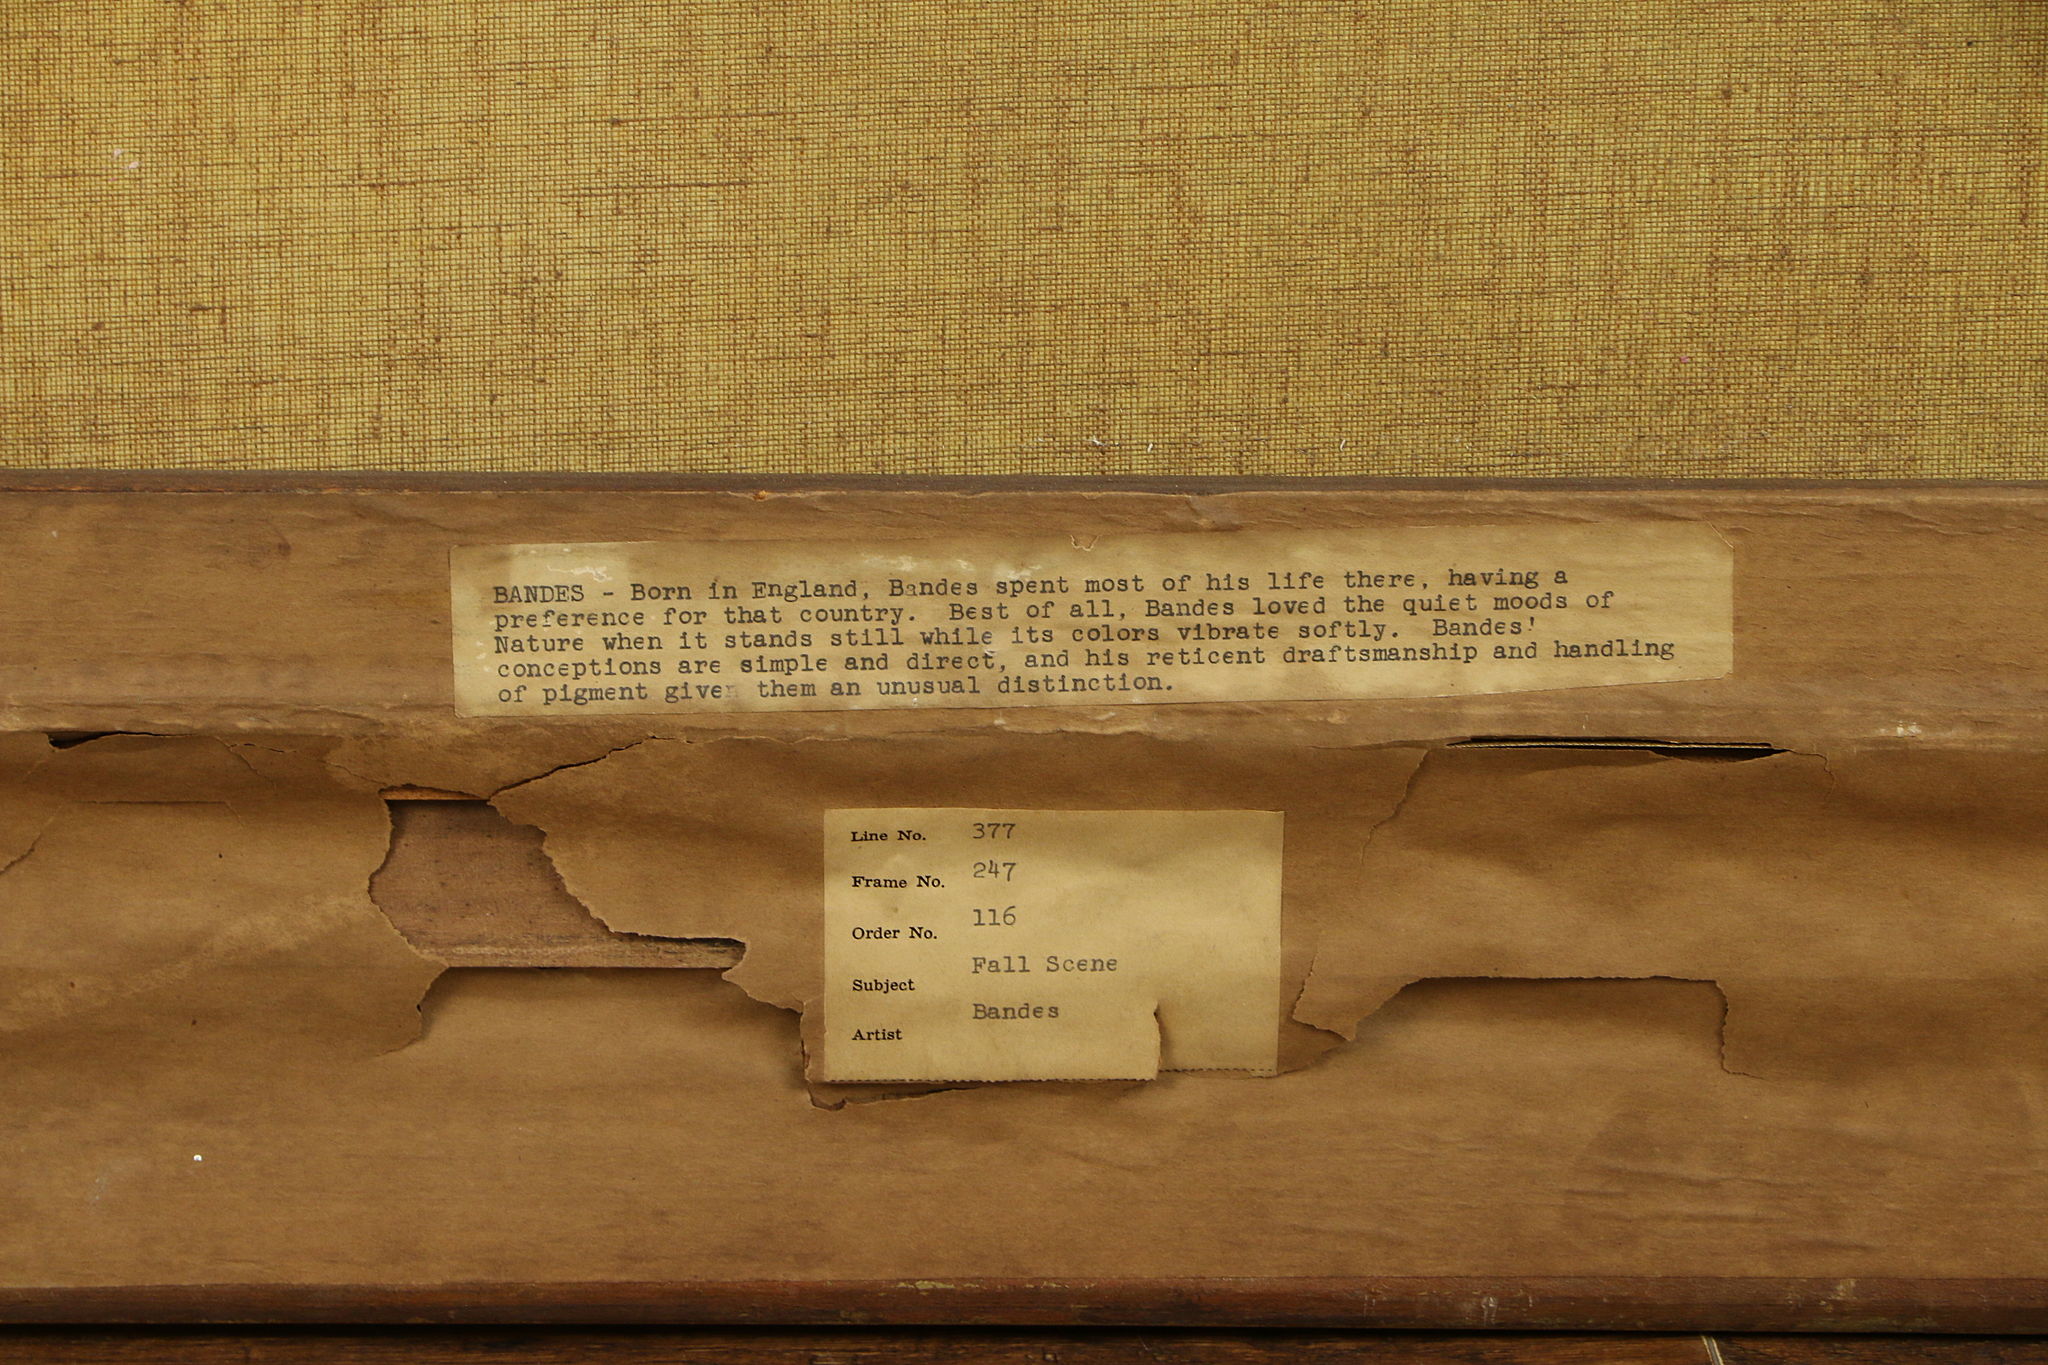 BANDES - Born in England, Bandes spent most of his life there, having a
preference for that country. Best of all, Bandes loved the quiet moods of
Nature when it stands still while its colors vibrate softly. Bandes'
conceptions are simple and direct, and his reticent draftsmanship and handling
of pigment given them an unusual distinction.
Line No. 377
Frame No. 247
Order No. 116
Subject Fall Scene
Artist Bandes